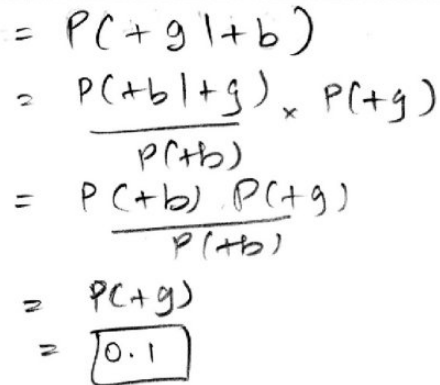 = P(+g|+b)
= P(+b|+g) × P(+g)
P(+b)
= P(+b) P(+g)
P(+b)
= P(+g)
= 0.1